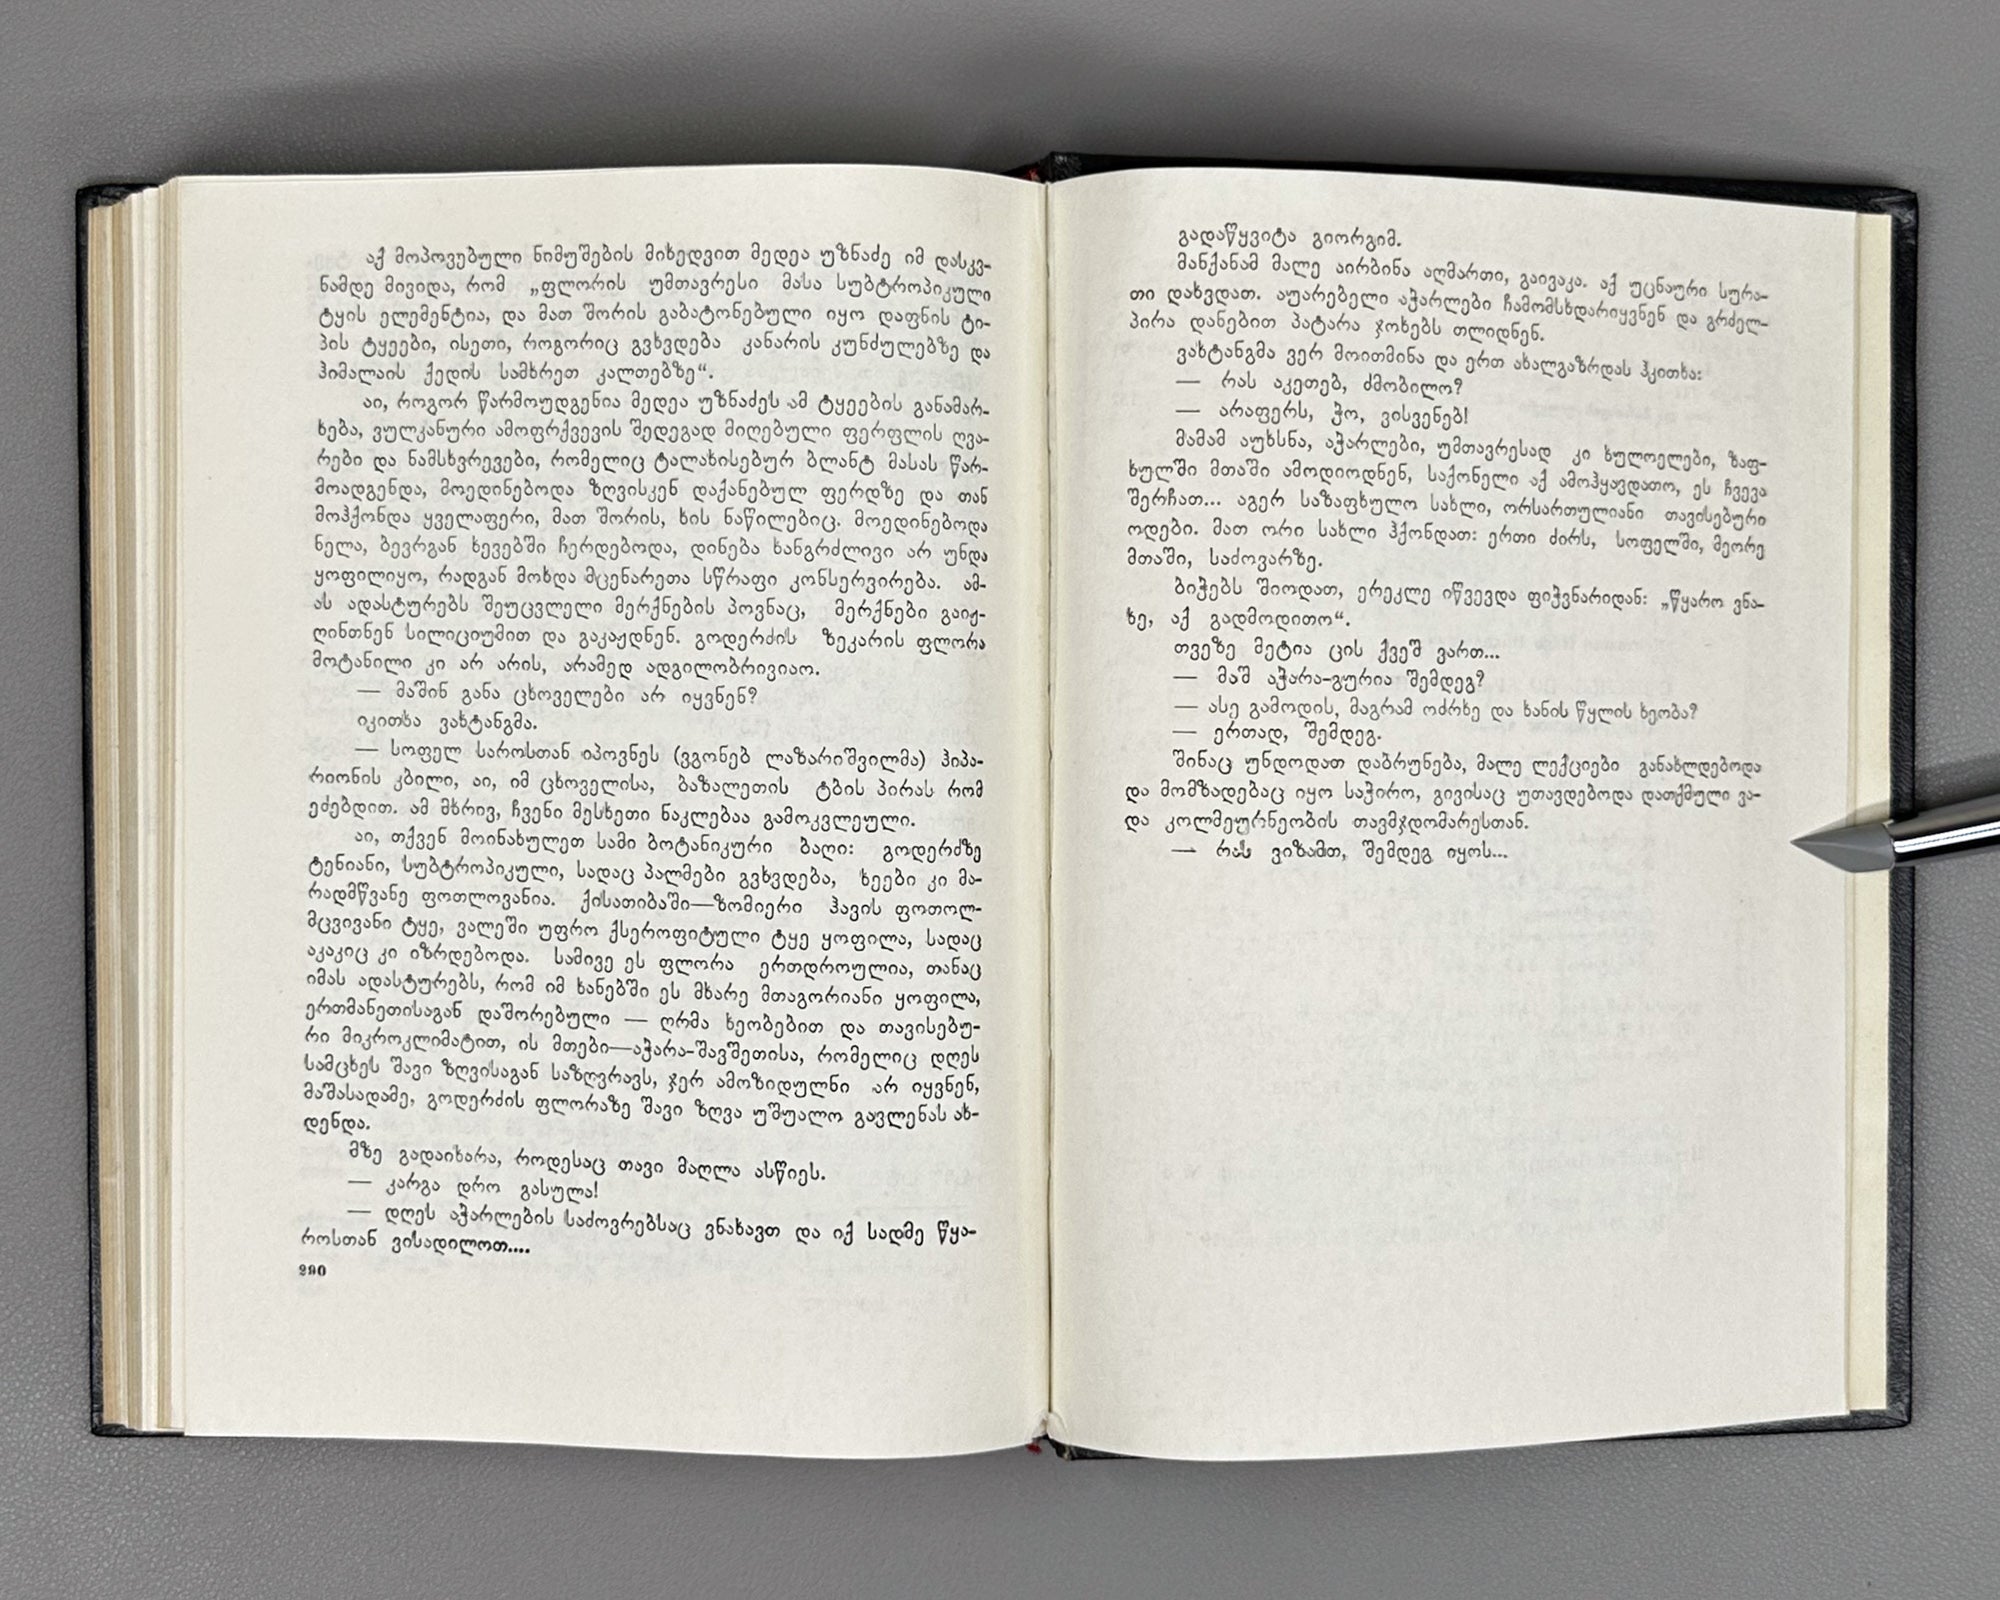 აქ მოპოვებული ნიმუშების მიხედვით მედეა უზნაძე იმ დასკვ-
ნამდე მივიდა, რომ „ფლორის უმთავრესი მასა სუბტროპიკული
ტყის ელემენტია, და მათ შორის გაბატონებული იყო დაფნის ტი-
პის ტყეები, ისეთი, როგორიც გვხვდება კანარის კუნძულებზე და
ჰიმალაის ქედის სამხრეთ კალთებზე“.
აი, როგორ წარმოუდგენია მედეა უზნაძეს ამ ტყეების განამარ-
ხება, ვულკანური ამოფრქვევის შედეგად მიღებული ფერფლის ღვა-
რები და ნამსხვრევები, რომელიც ტალახისებურ ბლანტ მასას წარ-
მოადგენდა, მოედინებოდა ზღვისკენ დაქანებულ ფერდზე და თან
მოჰქონდა ყველაფერი, მათ შორის, ხის ნაწილებიც. მოედინებოდა
ნელა, ბევრგან ხევებში ჩერდებოდა, დინება ხანგრძლივი არ უნდა
ყოფილიყო, რადგან მოხდა მცენარეთა სწრაფი კონსერვირება. ამ-
ას ადასტურებს შეუცვლელი მერქნების პოვნაც, მერქნები გაიჟ-
ღინთნენ სილიციუმით და გაკაჟდნენ. გოდერძის ზეკარის ფლორა
მოტანილი კი არ არის, არამედ ადგილობრივიაო.
— მაშინ განა ცხოველები არ იყვნენ?
იკითხა ვახტანგმა.
— სოფელ საროსთან იპოვნეს (ვგონებ ლაზარიშვილმა) ჰიპა-
რიონის კბილი, აი, იმ ცხოველისა, ბაზალეთის ტბის პირას რომ
ეძებდით. ამ მხრივ, ჩვენი მესხეთი ნაკლებაა გამოკვლეული.
აი, თქვენ მოინახულეთ სამი ბოტანიკური ბაღი: გოდერძზე
ტენიანი, სუბტროპიკული, სადაც პალმები გვხვდება, ხეები კი მა-
რადმწვანე ფოთლოვანია. ქისათიბაში—ზომიერი ჰავის ფოთოლ-
მცვივანი ტყე, ვალეში უფრო ქსეროფიტული ტყე ყოფილა, სადაც
აკაკიც კი იზრდებოდა. სამივე ეს ფლორა ერთდროულია, თანაც
იმას ადასტურებს, რომ იმ ხანებში ეს მხარე მთაგორიანი ყოფილა,
ერთმანეთისაგან დაშორებული — ღრმა ხეობებით და თავისებუ-
რი მიკროკლიმატით, ის მთები—აჭარა-შავშეთისა, რომელიც დღეს
სამცხეს შავი ზღვისაგან საზღვრავს, ჯერ ამოზიდულნი არ იყვნენ,
მაშასადამე, გოდერძის ფლორაზე შავი ზღვა უშუალო გავლენას ახ-
დენდა.
მზე გადაიხარა, როდესაც თავი მაღლა ასწიეს.
— კარგა დრო გასულა!
— დღეს აჭარლების საძოვრებსაც ვნახავთ და იქ სადმე წყა-
როსთან ვისადილოთ....
290
გადაწყვიტა გიორგიმ.
მანქანამ მალე აირბინა აღმართი, გაივაკა. აქ უცნაური სურა-
თი დახვდათ. აუარებელი აჭარლები ჩამომსხდარიყვნენ და გრძელ-
პირა დანებით პატარა ჯოხებს თლიდნენ.
ვახტანგმა ვერ მოითმინა და ერთ ახალგაზრდას ჰკითხა:
— რას აკეთებ, ძმობილო?
— არაფერს, ჭო, ვისვენებ!
მამამ აუხსნა, აჭარლები, უმთავრესად კი ხულოელები, ზაფ-
ხულში მთაში ამოდიოდნენ, საქონელი აქ ამოჰყავდათო, ეს ჩვევა
შერჩათ... აგერ საზაფხულო სახლი, ორსართულიანი თავისებური
ოდები. მათ ორი სახლი ჰქონდათ: ერთი ძირს, სოფელში, მეორე
მთაში, საძოვარზე.
ბიჭებს შიოდათ, ერეკლე იწვევდა ფიჭვნარიდან: „წყარო ვნა-
ხე, აქ გადმოდითო“.
თვეზე მეტია ცის ქვეშ ვართ...
— მაშ აჭარა-გურია შემდეგ?
— ასე გამოდის, მაგრამ ოძრხე და ხანის წყლის ხეობა?
— ერთად, შემდეგ.
შინაც უნდოდათ დაბრუნება, მალე ლექციები განახლდებოდა
და მომზადებაც იყო საჭირო, გივისაც უთავდებოდა დათქმული ვა-
და კოლმეურნეობის თავმჯდომარესთან.
— რას ვიზამთ, შემდეგ იყოს...